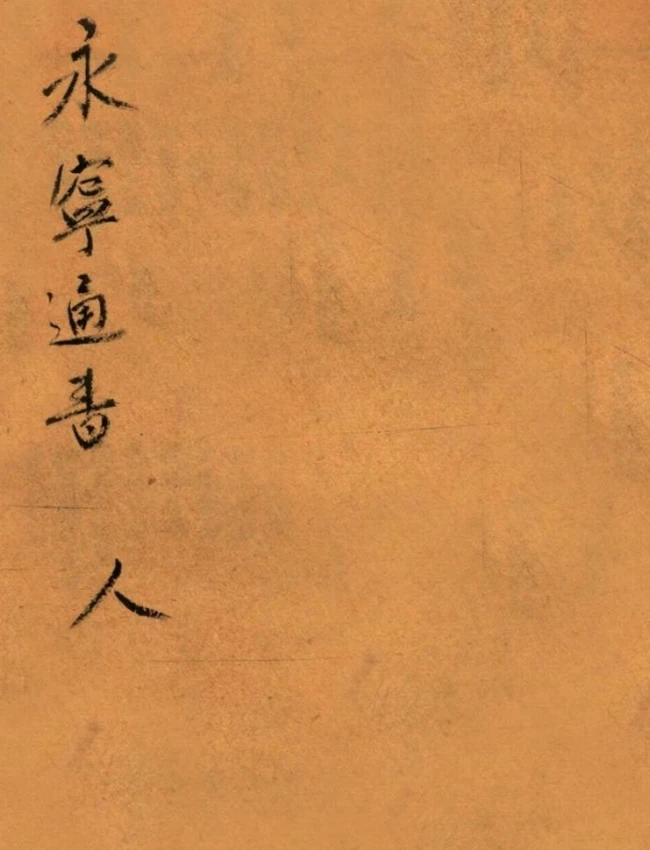 永寧通書
人